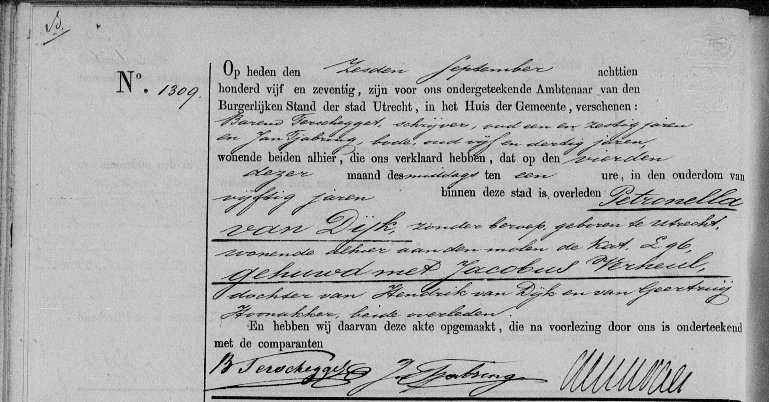 B.
Nº. 1309.
Op heden den Zesden September achttien
honderd vijf en zeventig, zijn voor ons ondergeteekende Ambtenaar van den
Burgerlijken Stand der stad Utrecht, in het Huis der Gemeente, verschenen:
Barend Terschegget, schrijver, oud een en zestig jaren
en Jan Tjabring, bode, oud vijf en dertig jaren,
wonende beiden alhier, die ons verklaard hebben, dat op den vierden
dezer maand des middags ten een ure, in den ouderdom van
vijftig jaren binnen deze stad is overleden Petronella
van Dijk, zonder beroep, geboren te Utrecht,
wonende alhier aan den molen de Kat, L 96,
gehuwd met Jacobus Verheul,
dochter van Hendrik van Dijk en van Geertruij
Hoornakker, beide overleden.
En hebben wij daarvan deze akte opgemaakt, die na voorlezing door ons is onderteekend
met de comparanten
B Terschegget J Tjabring